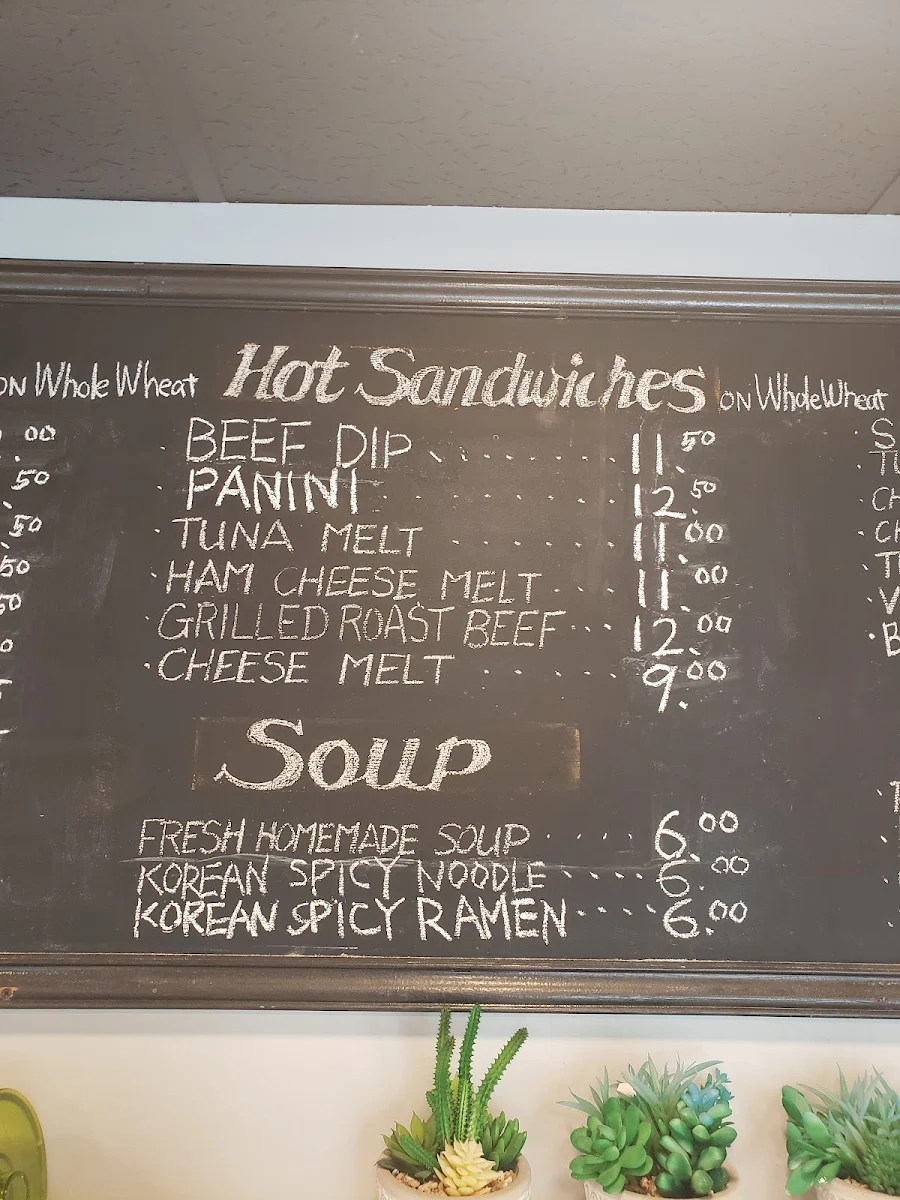 ON Whole Wheat
Hot Sandwiches
ON Whole Wheat
00
50
.50
50
50
BEEF DIP 11.50
PANINI 12.50
TUNA MELT 11.00
HAM CHEESE MELT 11.00
GRILLED ROAST BEEF 12.00
CHEESE MELT 9.00
Soup
FRESH HOMEMADE SOUP 6.00
KOREAN SPICY NOODLE 6.00
KOREAN SPICY RAMEN 6.00